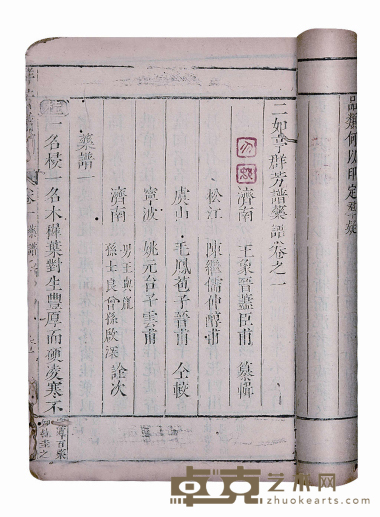 品類何以印定
二如亭群芳譜藥譜卷之一
濟南　王象晉藎臣甫　纂輯
松江　陳繼儒仲醇甫
虞山　毛鳳苞子晉甫　仝較
寧波　姚元台子雲甫
濟南　男王與
孫士良曾孫啟深　詮次
藥譜一
名 一名木犀葉對生豐厚而硬凌寒不
卓克艺术网
zhuokearts.com